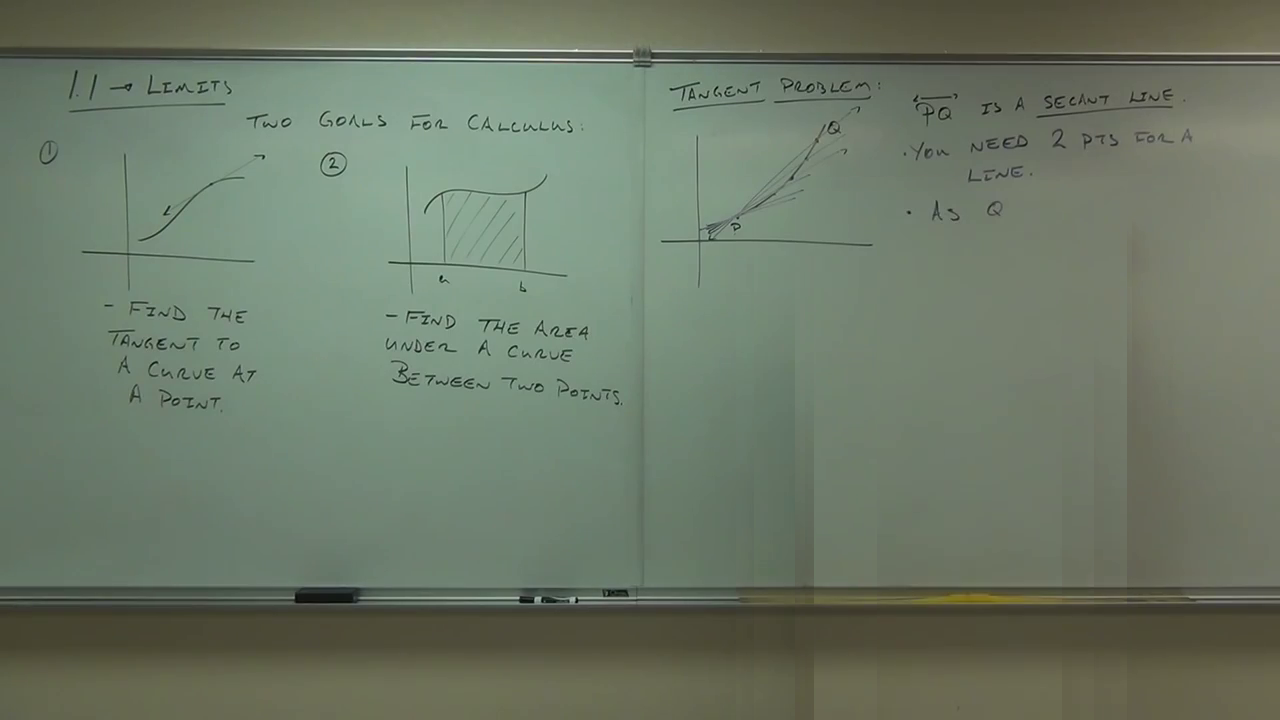 1.1 → LIMITS
TWO GOALS FOR CALCULUS:
①
②
a
b
- FIND THE
TANGENT TO
A CURVE AT
A POINT.
- FIND THE AREA
UNDER A CURVE
BETWEEN TWO POINTS.
TANGENT PROBLEM:
Q
P
PQ IS A SECANT LINE.
• YOU NEED 2 PTS FOR A
LINE.
• AS Q